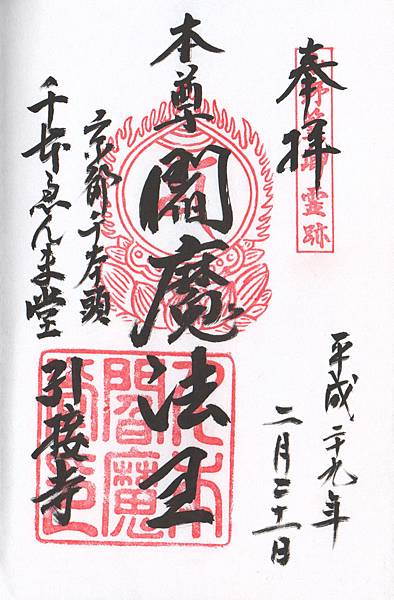 奉拝
霊跡
平成二十九年
二月二十一日
本尊
閻魔法王
京都千本頭
千本ゑんま堂
引接寺
閻魔